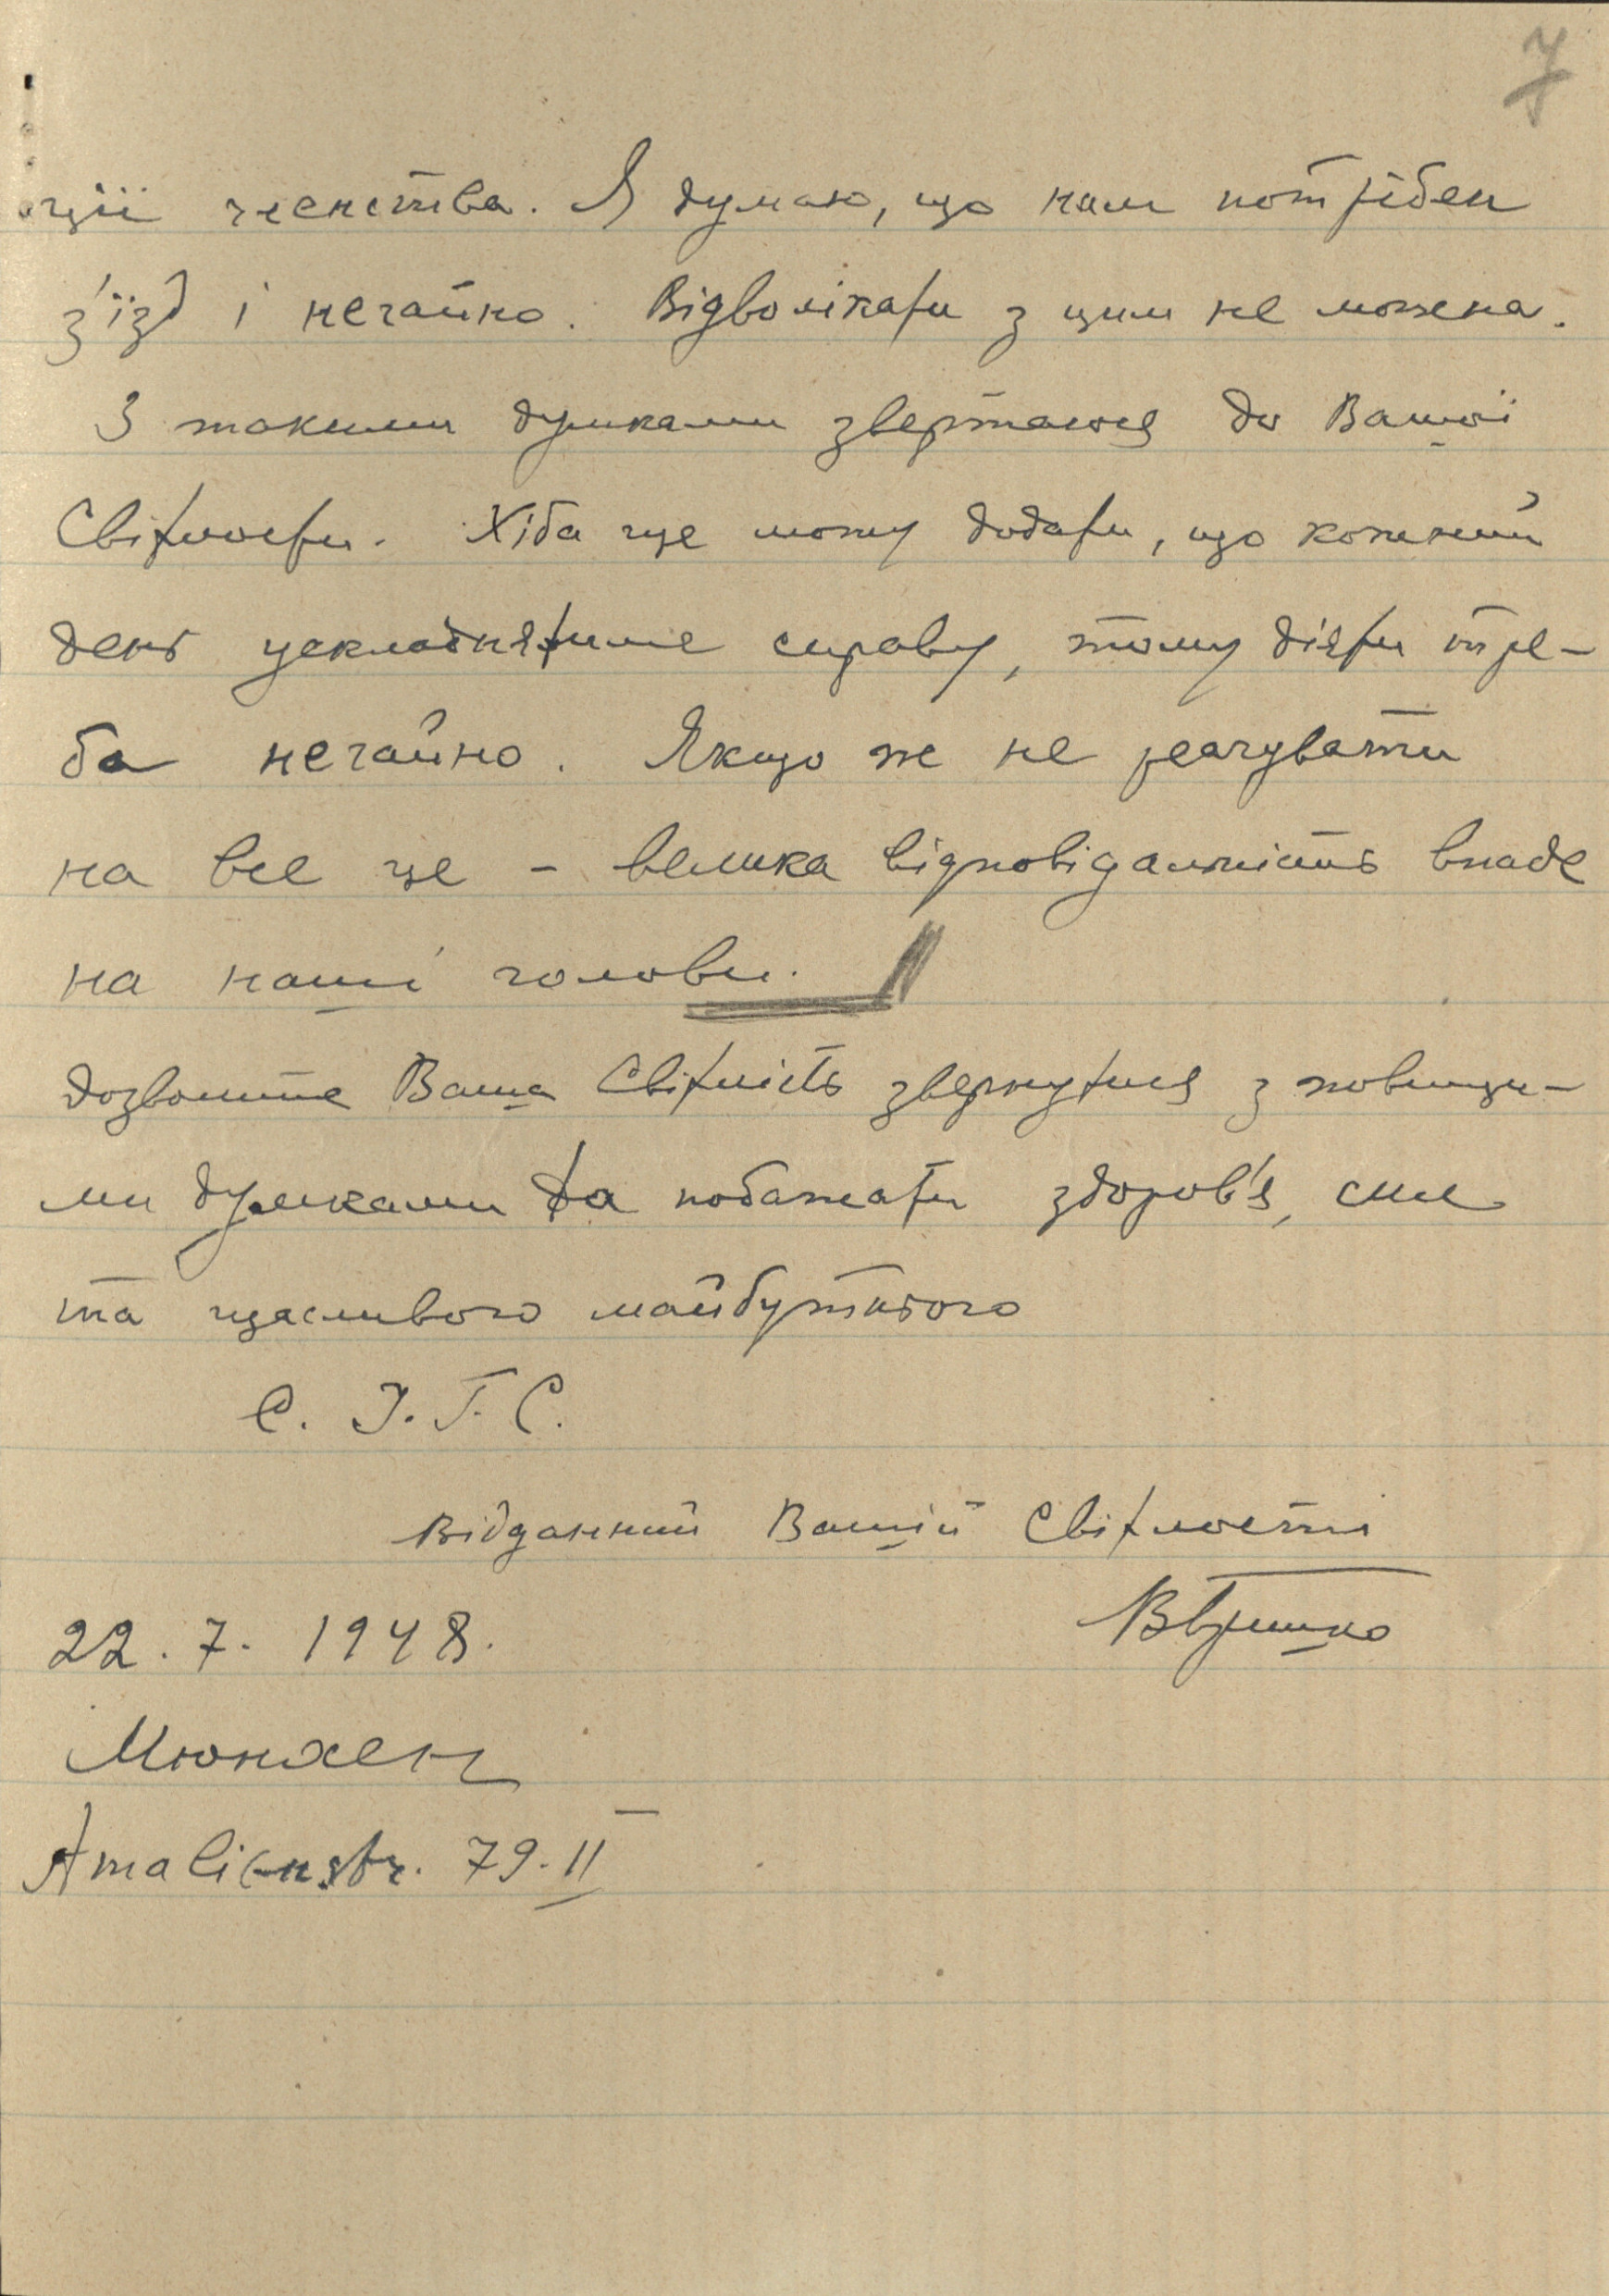 7
ції членства. Я думаю, що нам потрібен
з'їзд і негайно. Відволікати з цим не можна.
З такими думками звертаюся до Вашої
Світлости. Хіба ще можу додати, що кожний
день ускладнятиме справу, тому діяти тре-
ба негайно. Якщо ж не реагувати
на все це – велика відповідальність впаде
на наші голови.
Дозвольте Ваша Світлість звернутися з повищи-
ми думками та побажати здоров'я, сил
та щасливого майбутнього
С. І. Г. С.
Відданний Вашій Світлості
22. 7. 1948.
Мюнхен
Amalienstr. 79. II